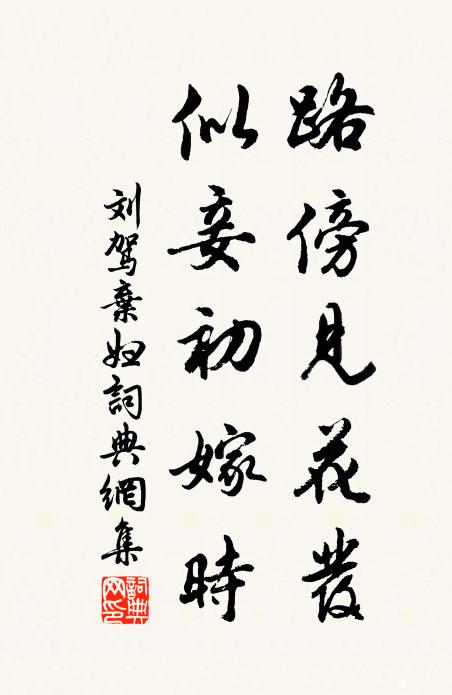 路傍見花發
似妾初嫁時
刘駕棄婦詞典網集
詞典網印